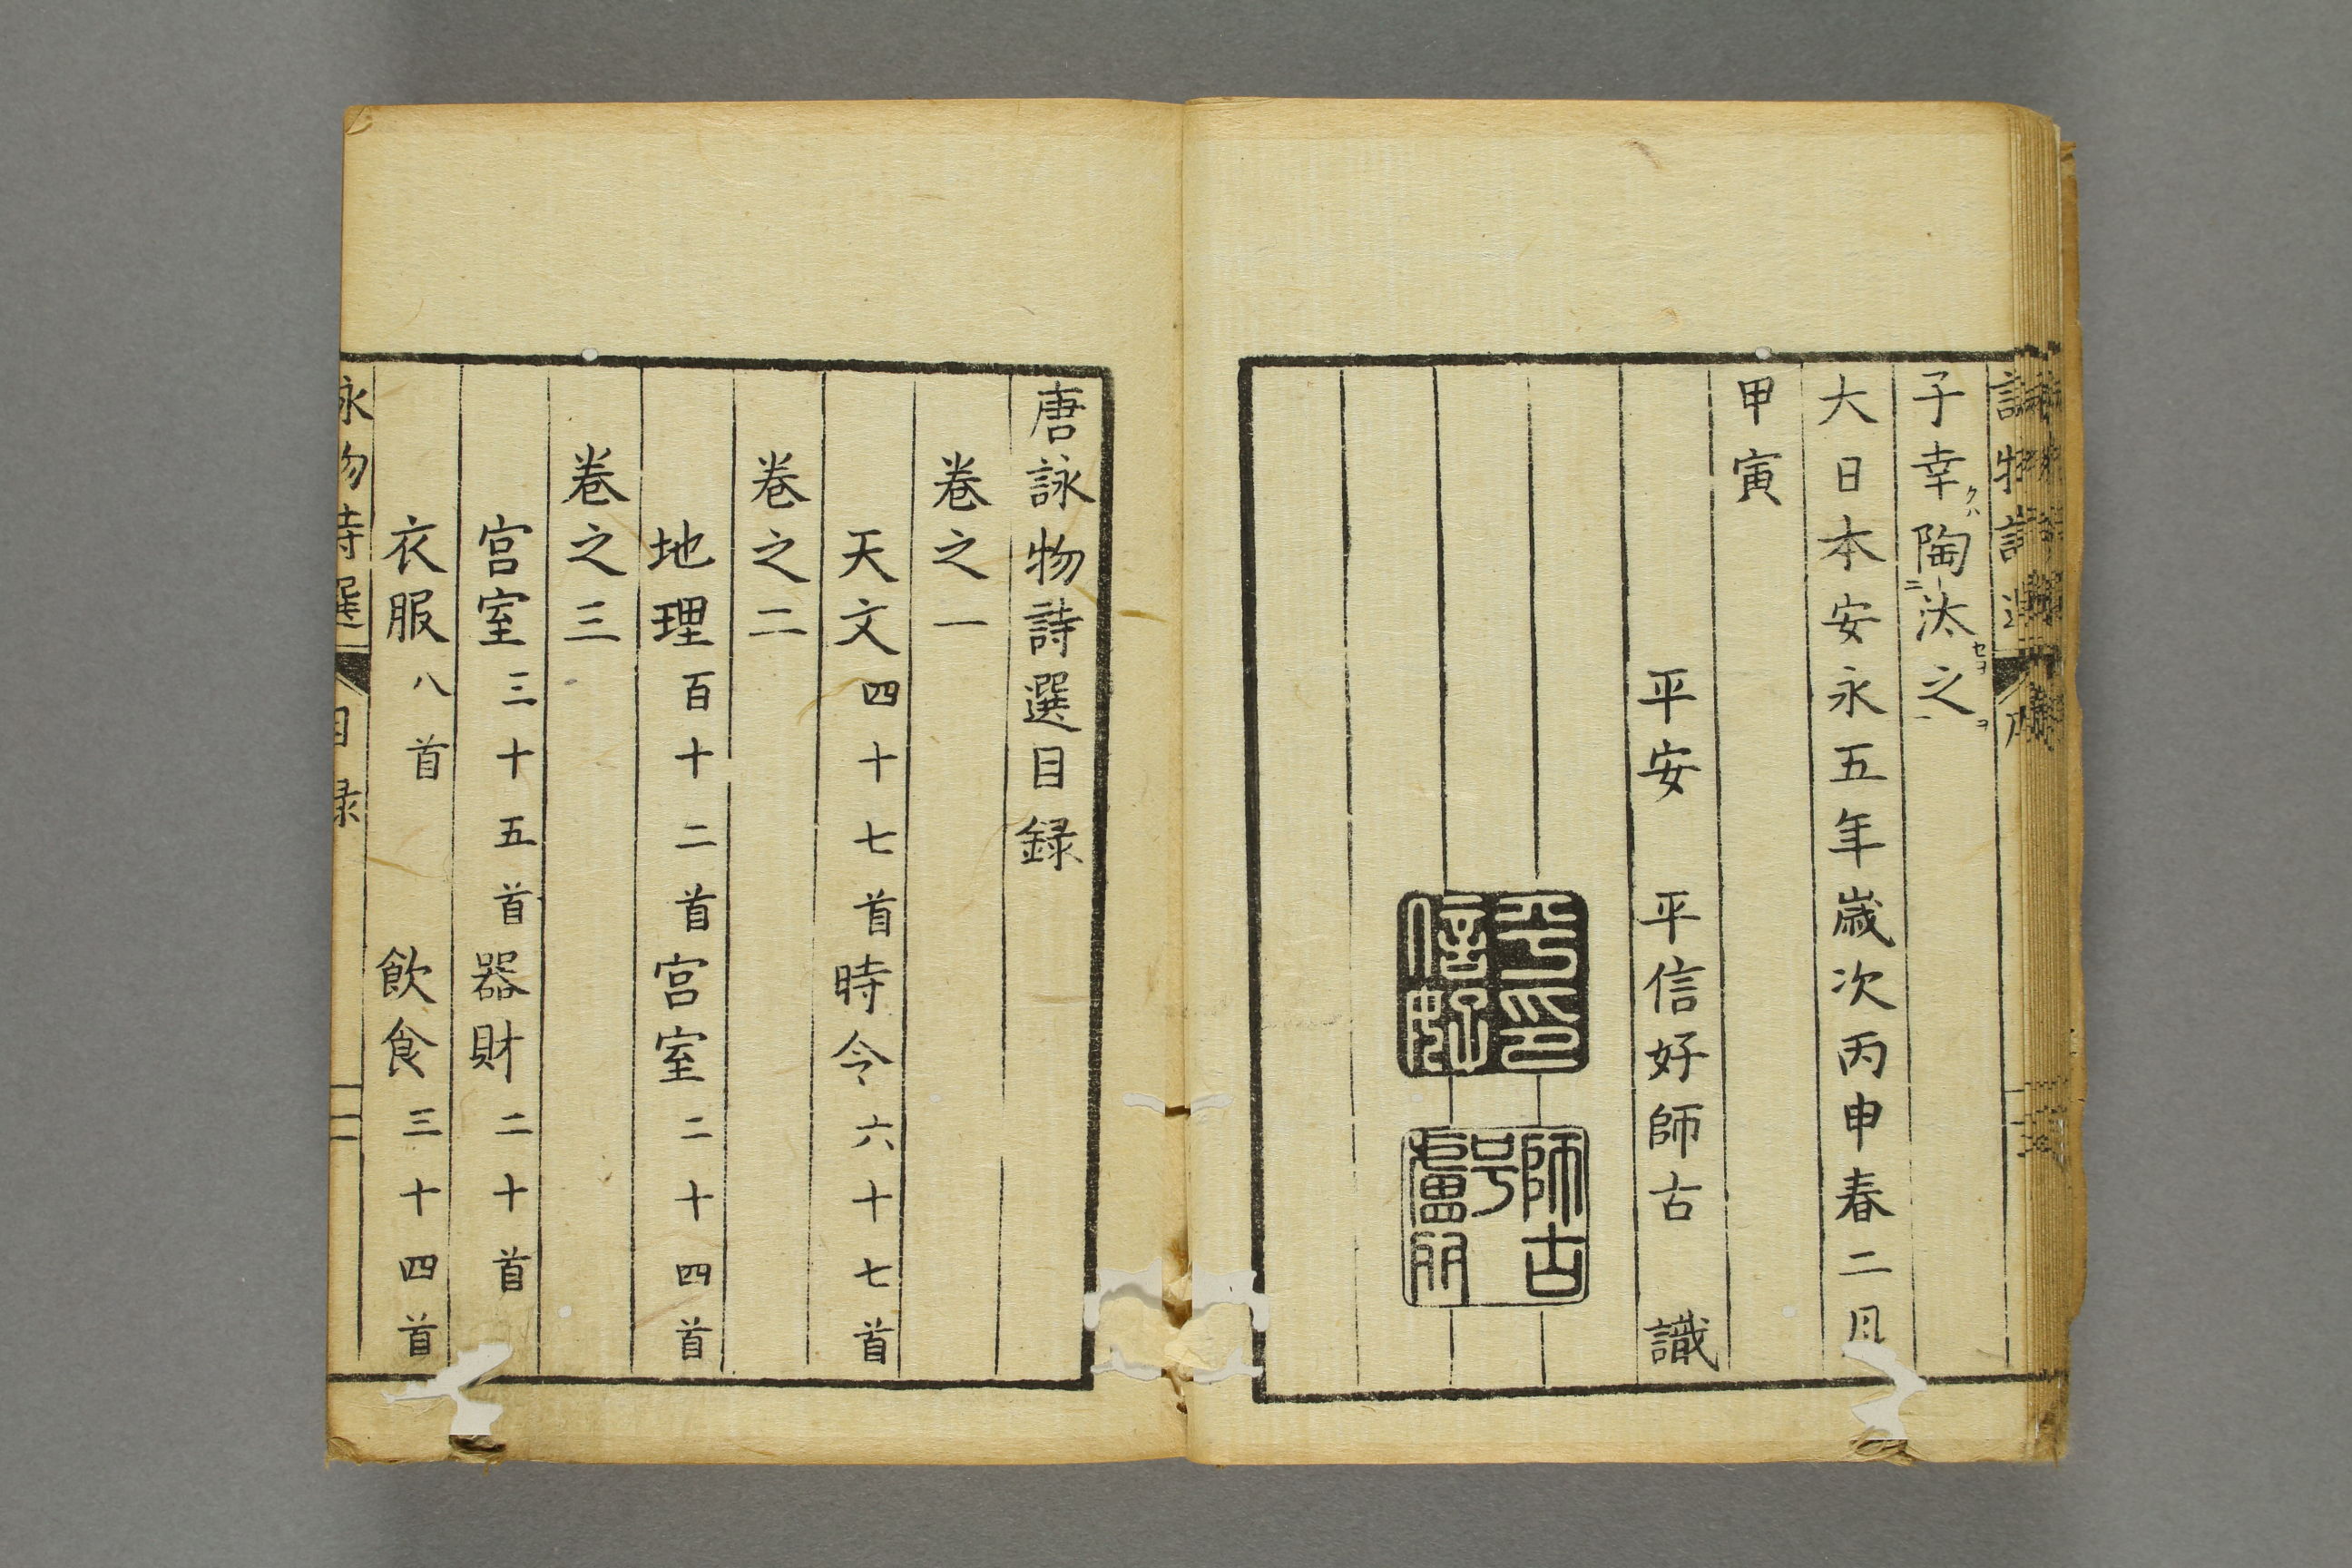 子幸クハ陶二汰セヨ之一ヲ
大日本安永五年歲次丙申春二月
甲寅
平安 平信好師古 識
師古
唐詠物詩選目録
卷之一
天文四十七首時令六十七首
卷之二
地理百十二首宮室二十四首
卷之三
宮室三十五首器財二十首
衣服八首 飲食三十四首
詠物詩選 目録 一